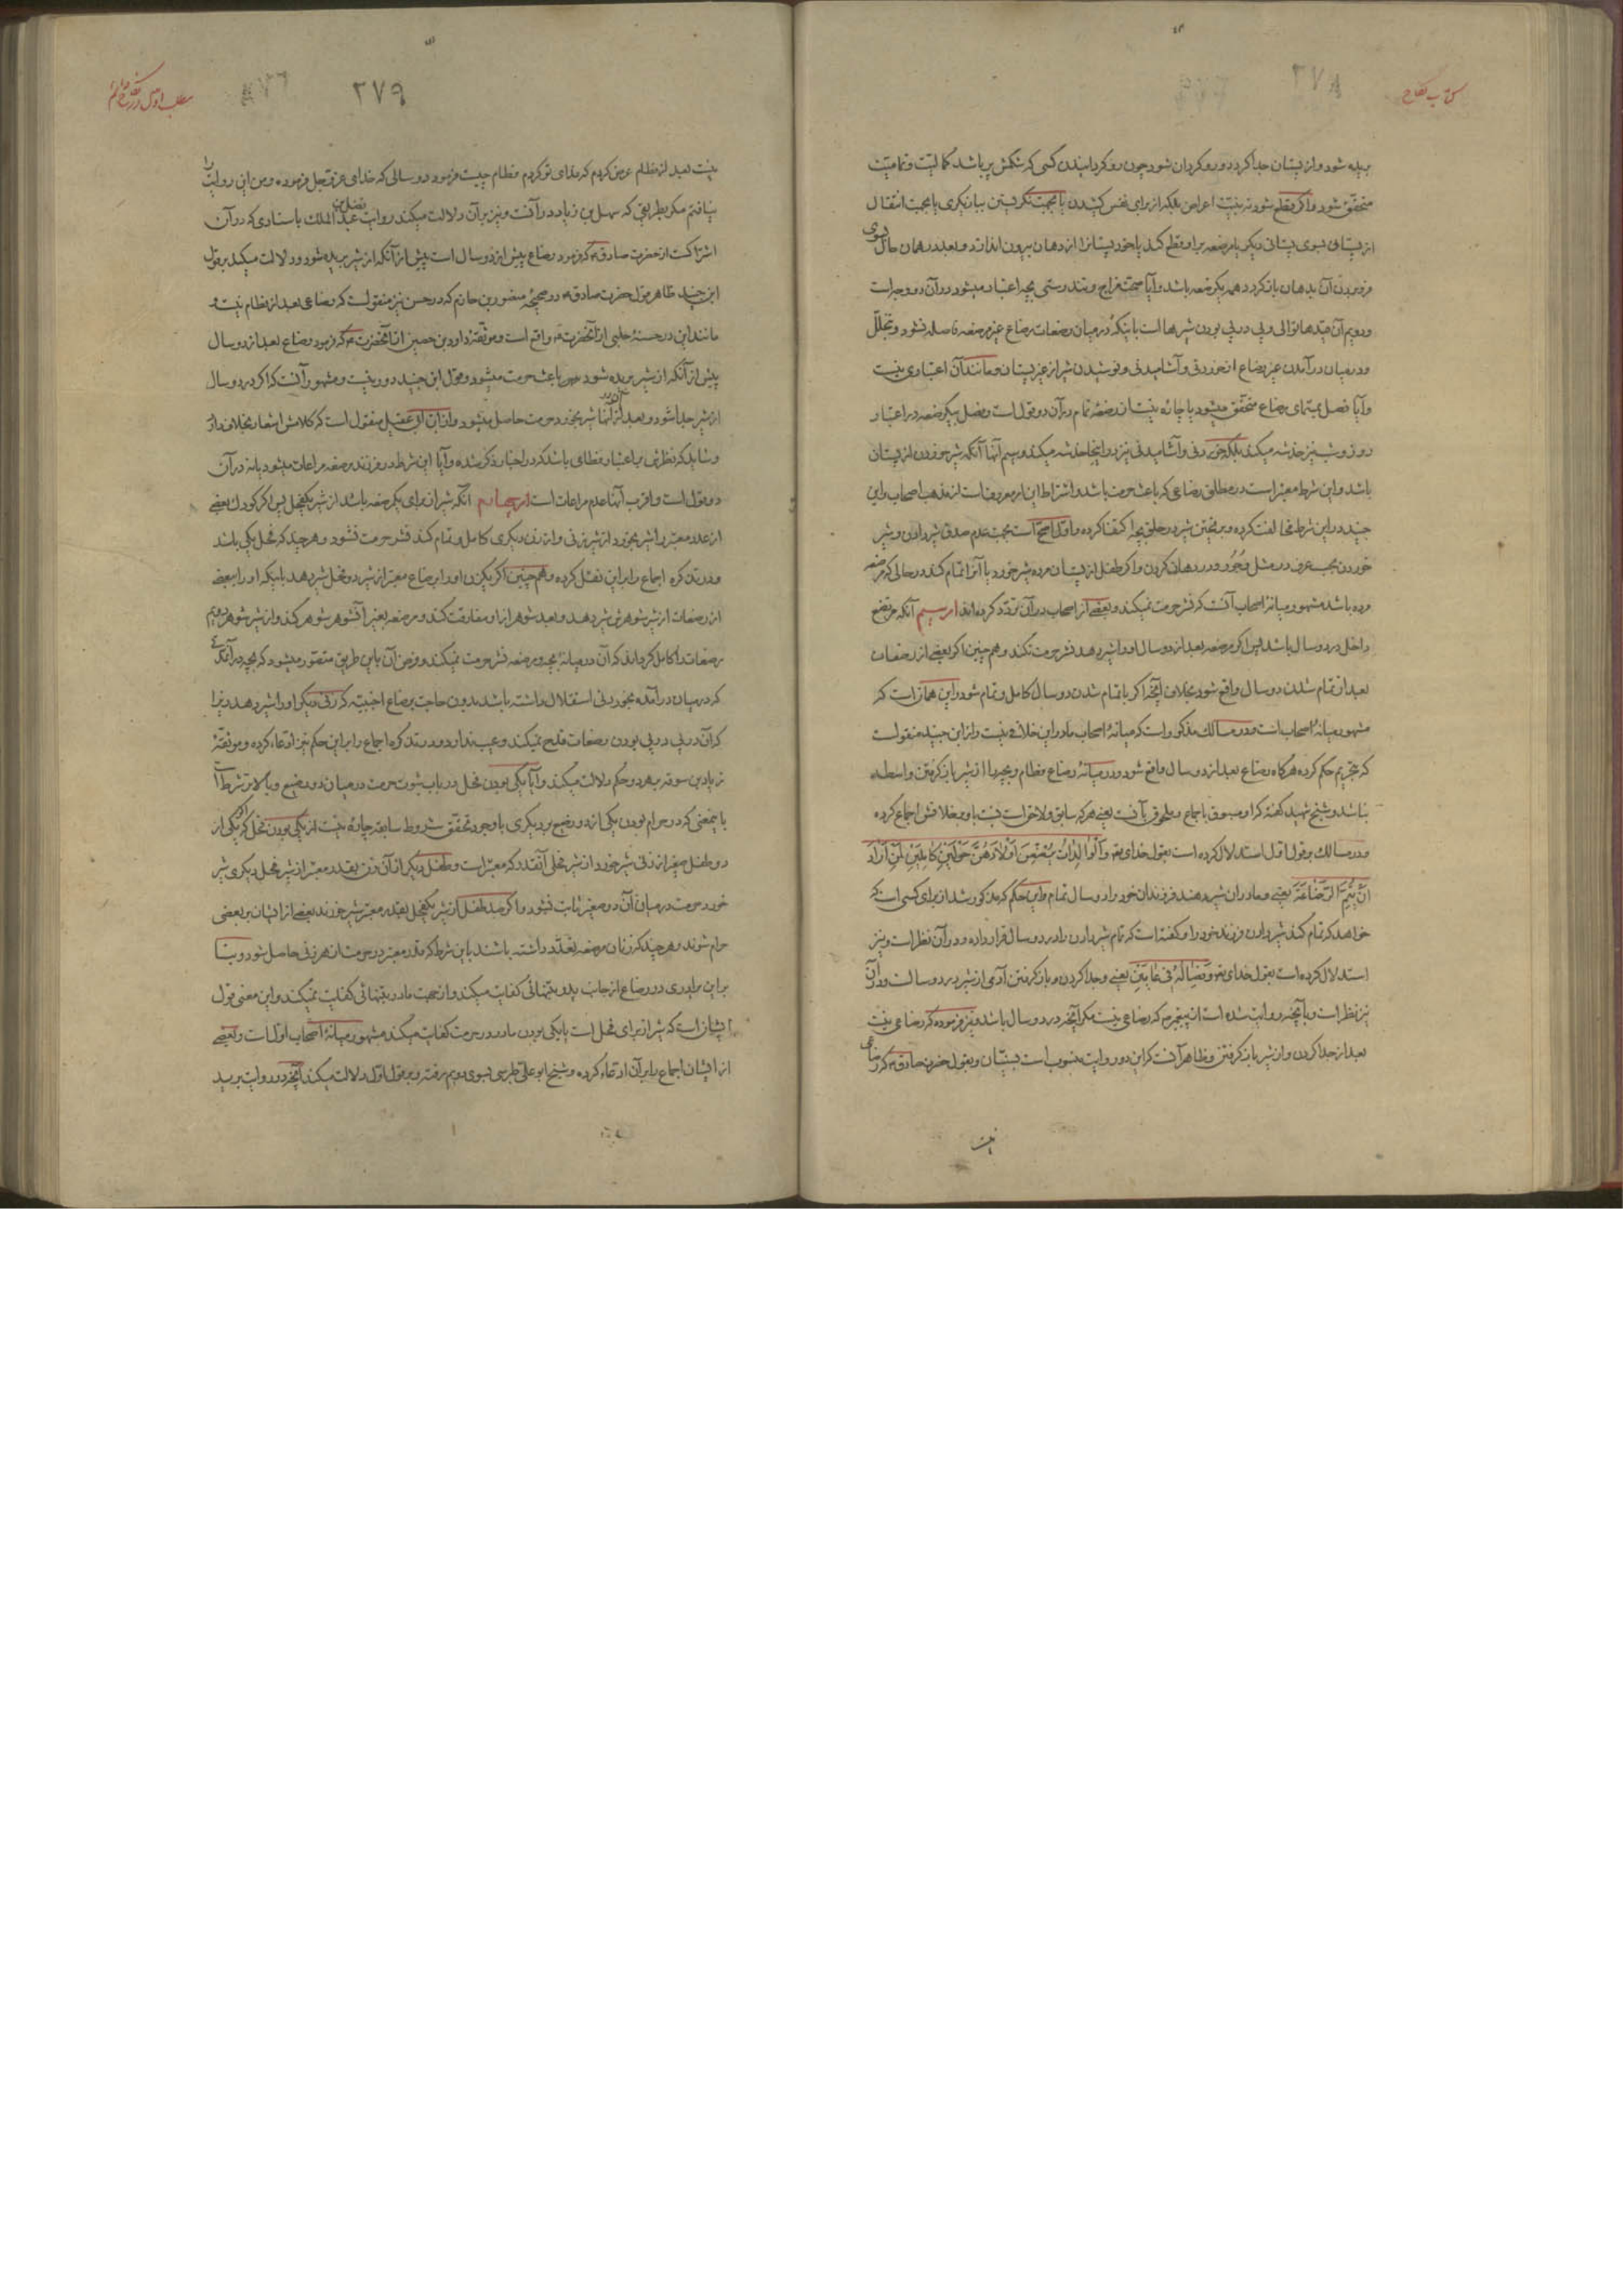 کتاب نکاح
۲۷۸
بریده شود و از پستان جدا کردد و رو کردان شود چون رو کردانیدن کسی که شکمش پر باشد کمالیّت و تمامیّت
متحقّق شود و اکر قطع شود نه بنیّت اعراض بلکه از برای نفس کشیدن یا بجهت نکریستن ببازیکری یا بجهت انتقال
از پستانی بسوی پستانی دیکر یا مرضعه بر او قطع کند یا خود پستانرا از دهان بیرون اندازد و بعد در همان حال بسوی
فرو بردن آن بدهان باز کردد همه یکرضعه باشد و آیا صحّت مزاج و تندرستی بچه اعتبار میشود در آن دو وجه است
و دویم آن قیدها توالی و پی در پی بودن شیرها است باینکه در میان رضعات رضاع غیر مرضعه فاصله نشود و تخلّل
و در میان درآمدن غیر رضاع از خوردنی و آشامیدنی و نوشیدن شیر از غیر پستان و مانند آن اعتباری نیست
و آیا فصل بمسمّای رضاع متحقّق میشود یا چاره نیست از رضعهٔ تمام در آن دو قول است و فصل بیکرضعه در اعتبار
روز و شب نیز خدشه میکند بلکه خوردنی و آشامیدنی نیز در اینجا خدشه میکند و سیم آنها آنکه شیر خوردن از پستان
باشد و این شرط معتبر است در مطلق رضاعی که باعث حرمت باشد و اشتراط این امر معروفست از مذهب اصحاب و ابن
جنید در این شرط مخالفت کرده و بریختن شیر در حلق بچه اکتفا کرده و اوّل اصحّ است بجهت عدم صدق شیر دادن و شیر
خوردن بحسب عرف در مثل وَجُور و در دهان کردن و اکر طفل از پستان مرده شیر خورد یا آنرا تمام کند در حالی که مرضعه
مرده باشد مشهور میانهٔ اصحاب آنست که نشر حرمت نمیکند و بعضے از اصحاب در آن تردّد کرده‌اند امر سیم آنکه مرتضع
داخل در دو سال باشد پس اکر مرضعه بعد از دو سال او را شیر دهد نشر حرمت نکند و هم چنین اکر بعضے از رضعات
بعد از تمام شدن دو سال واقع شود بخلاف آنچه اکر با تمام شدن دو سال کامل و تمام شود و این همان است که
مشهور میانهٔ اصحاب است و در مسالک مذکور است که میانهٔ اصحاب ما در این خلافے نیست و از ابن جنید منقولست
که بتحریم حکم کرده هرکاه رضاع بعد از دو سال واقع شود و در میانهٔ رضاع فطام و بچه را از شیر باز کرفتن واسطه
نباشد و شیخ شهید کفته که او مسبوق باجماع و ملحوق بآنست یعنے هر که سابق و لاحق است نسبت باو بر خلافش اجماع کرده
و در مسالک بر قول اوّل استدلال کرده است بقول خدای تعه وَالْوالِداتُ یُرْضِعْنَ اَوْلادَهُنَّ حَوْلَیْنِ کامِلَیْنِ لِمَنْ اَرادَ
اَنْ یُتِمَّ الرَّضاعَةَ یعنے و مادران شیر دهند فرزندان خود را دو سال تمام و این حکم که مذکور شد از برای کسی است که
خواهد که تمام کند شیر دادن فرزند خود را و کفته است که تمام شیر دادن را در دو سال قرار داده و در آن نظر است و نیز
استدلال کرده است بقول خدای تعه وَفِصالُهُ فی عامَیْنِ یعنے و جدا کردن و باز کرفتن آدمی از شیر در دو سالست و در آن
نیز نظر است و بآنچه روایت شده است از پیغمبرص که رضاعی نیست مکر آنچه در دو سال باشد و نیز فرموده که رضاعی نیست
بعد از جدا کردن و از شیر باز کرفتن و ظاهر آنست که این دو روایت منسوب است بسنّیان و بقول حضرت صادقع که رضاعی
نیست
مطلب اوّل در نکاح دائم
۲۷۹
نیست بعد از فطام عرض کردم که فدای تو کردم فطام چیست فرمود دو سالی که خدای عزّ و جل فرموده و من این روایت را
نیافتم مکر بطریقی که سهل بن زیاد در آنست و نیز بر آن دلالت میکند روایت فضل بن عبد الملک باسنادی که در آن
اشتراکست از حضرت صادقع که فرمود رضاع پیش از دو سال است پیش از آنکه از شیر بریده شود و دلالت میکند بر قول
ابن جنید ظاهر قول حضرت صادقع در صحیحهٔ منصور بن حازم که در حسن نیز منقولست که رضاعی بعد از فطام نیست و
مانند این در حسنهٔ حلبی از آنحضرتع واقع است و موثّقهٔ داود بن حصین از آنحضرتع که فرمود رضاع بعد از دو سال
پیش از آنکه از شیر بریده شود باعث حرمت میشود و قول ابن جنید دور نیست و مشهور آنست که اکر در دو سال
از شیر جدا شود و بعد از آنها شیر بخورد حرمت حاصل میشود و از ابن ابی عقیل منقول است که کلامش اشعار بخلاف دارد
و شاید که نظرش باعتبار فطامی باشد که در اخبار ذکر شده و آیا این شرط در فرزند مرضعه مراعات میشود یا نه در آن
دو قول است و اقرب آنها عدم مراعات است امر چهارم آنکه شیر از برای یکرضعه باشد از شیر یکفحل پس اکر کودک بعضے
از عدد معتبر را شیر بخورد از شیر زنی و از زن دیکری کامل و تمام کند نشر حرمت نشود و هر چند که فحل یکی باشد
و در تذکره اجماع را بر این نقل کرده و هم چنین اکر یکزن او را برضاع معتبر از شیر دو فحل شیر دهد باینکه او را ببعضے
از رضعات از شیر شوهرش شیر دهد و بعد شوهر از او مفارقت کند و مرضعه بغیر آنشوهر شوهر کند و از شیر شوهر دویم
رضعات را کامل کرداند که آن در میانهٔ بچه و مرضعه نشر حرمت نمیکند و فرض آن باین طریق متصوّر میشود که بچه در آنمدّت
که در میان درآمده بخوردنی استقلال داشته باشد بدون حاجت برضاع اجنبیّه که زنی دیکر او را شیر دهد زیرا
که آن در پی در پی بودن رضعات قدح نمیکند و عیب ندارد و در تذکره اجماع را بر این حکم نیز ادّعاء کرده و موثّقهٔ
زیاد بن سوقه بر هر دو حکم دلالت میکند و آیا یکی بودن فحل در باب ثبوت حرمت در میان دو رضیع و بالاتر شرط است
باینمعنی که در حرام بودن یکی از دو رضیع بر دیکری با وجود تحقّق شروط سابقه چاره نیست از یکی بودن فحل که اکر یکی از
دو طفل صغیر از زنی شیر خورد از شیر فحلی آنقدر که معتبر است و طفل دیکر از آن زن بقدر معتبر از شیر فحل دیکری شیر
خورد حرمت در میان آن دو صغیر ثابت نشود و اکر صد طفل از شیر یکفحل بقدر معتبر شیر خورند بعضے از ایشان بر بعضی
حرام شوند و هر چند که زنان مرضعه تعدّد داشته باشند باین شرط که قدر معتبر در حرمت از هر زنی حاصل شود و بنا
بر این برادری در رضاع از جانب پدر بتنهائی کفایت میکند و از جهت مادر بتنهائی کفایت نمیکند و این معنی قول
ایشان است که شیر از برای فحل است یا یکی بودن مادر در حرمت کفایت میکند مشهور میانهٔ اصحاب اوّل است و بعضے
از ایشان اجماع را بر آن ادّعاء کرده و شیخ ابو علی طبرسی بسوی دویم رفته و بر قول اوّل دلالت میکند آنچه در روایت برید